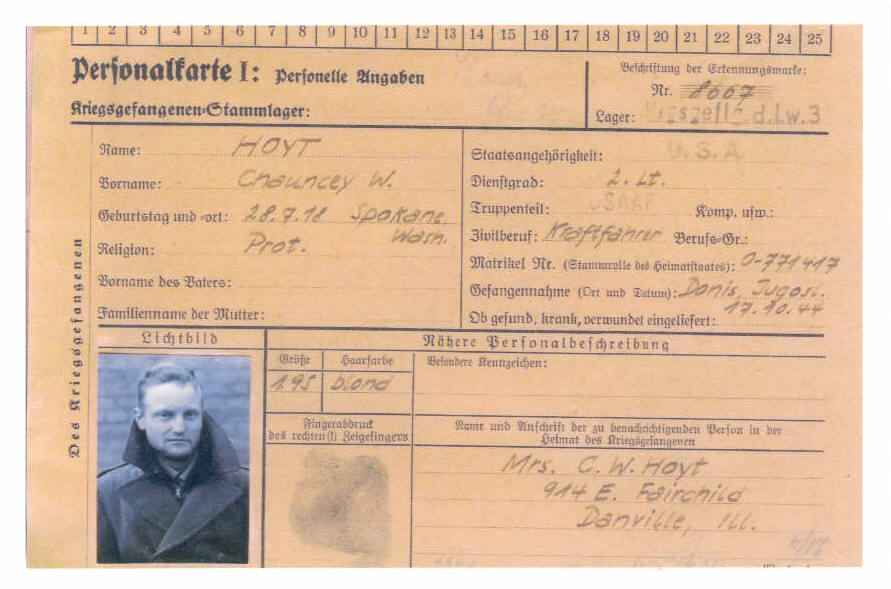 1 2 3 4 5 6 7 8 9 10 11 12 13 14 15 16 17 18 19 20 21 22 23 24 25
Personalkarte I: Personelle Angaben
Kriegsgefangenen-Stammlager:
Beschriftung der Erkennungsmarke:
Nr. 8667
Lager: Krgsgefl. d. Lw. 3
Des Kriegsgefangenen
Name: HOYT
Vorname: Chauncey W.
Geburtstag und -ort: 28.7.18 Spokane, Wash.
Religion: Prot.
Vorname des Vaters:
Familienname der Mutter:
Staatsangehörigkeit: U.S.A
Dienstgrad: 2. Lt.
Truppenteil: USAAF Komp. usw.:
Zivilberuf: Kraftfahrer Berufs-Gr.:
Matrikel Nr. (Stammrolle des Heimatstaates): O-771417
Gefangennahme (Ort und Datum): Donis, Jugosl.
17.10.44
Ob gesund, krank, verwundet eingeliefert:
Lichtbild
Nähere Personalbeschreibung
Größe Haarfarbe
1.95 blond
Besondere Kennzeichen:
Fingerabdruck
des rechten (!) Zeigefingers
Name und Anschrift der zu benachrichtigenden Person in der
Heimat des Kriegsgefangenen
Mrs. C. W. Hoyt
914 E. Fairchild
Danville, Ill.